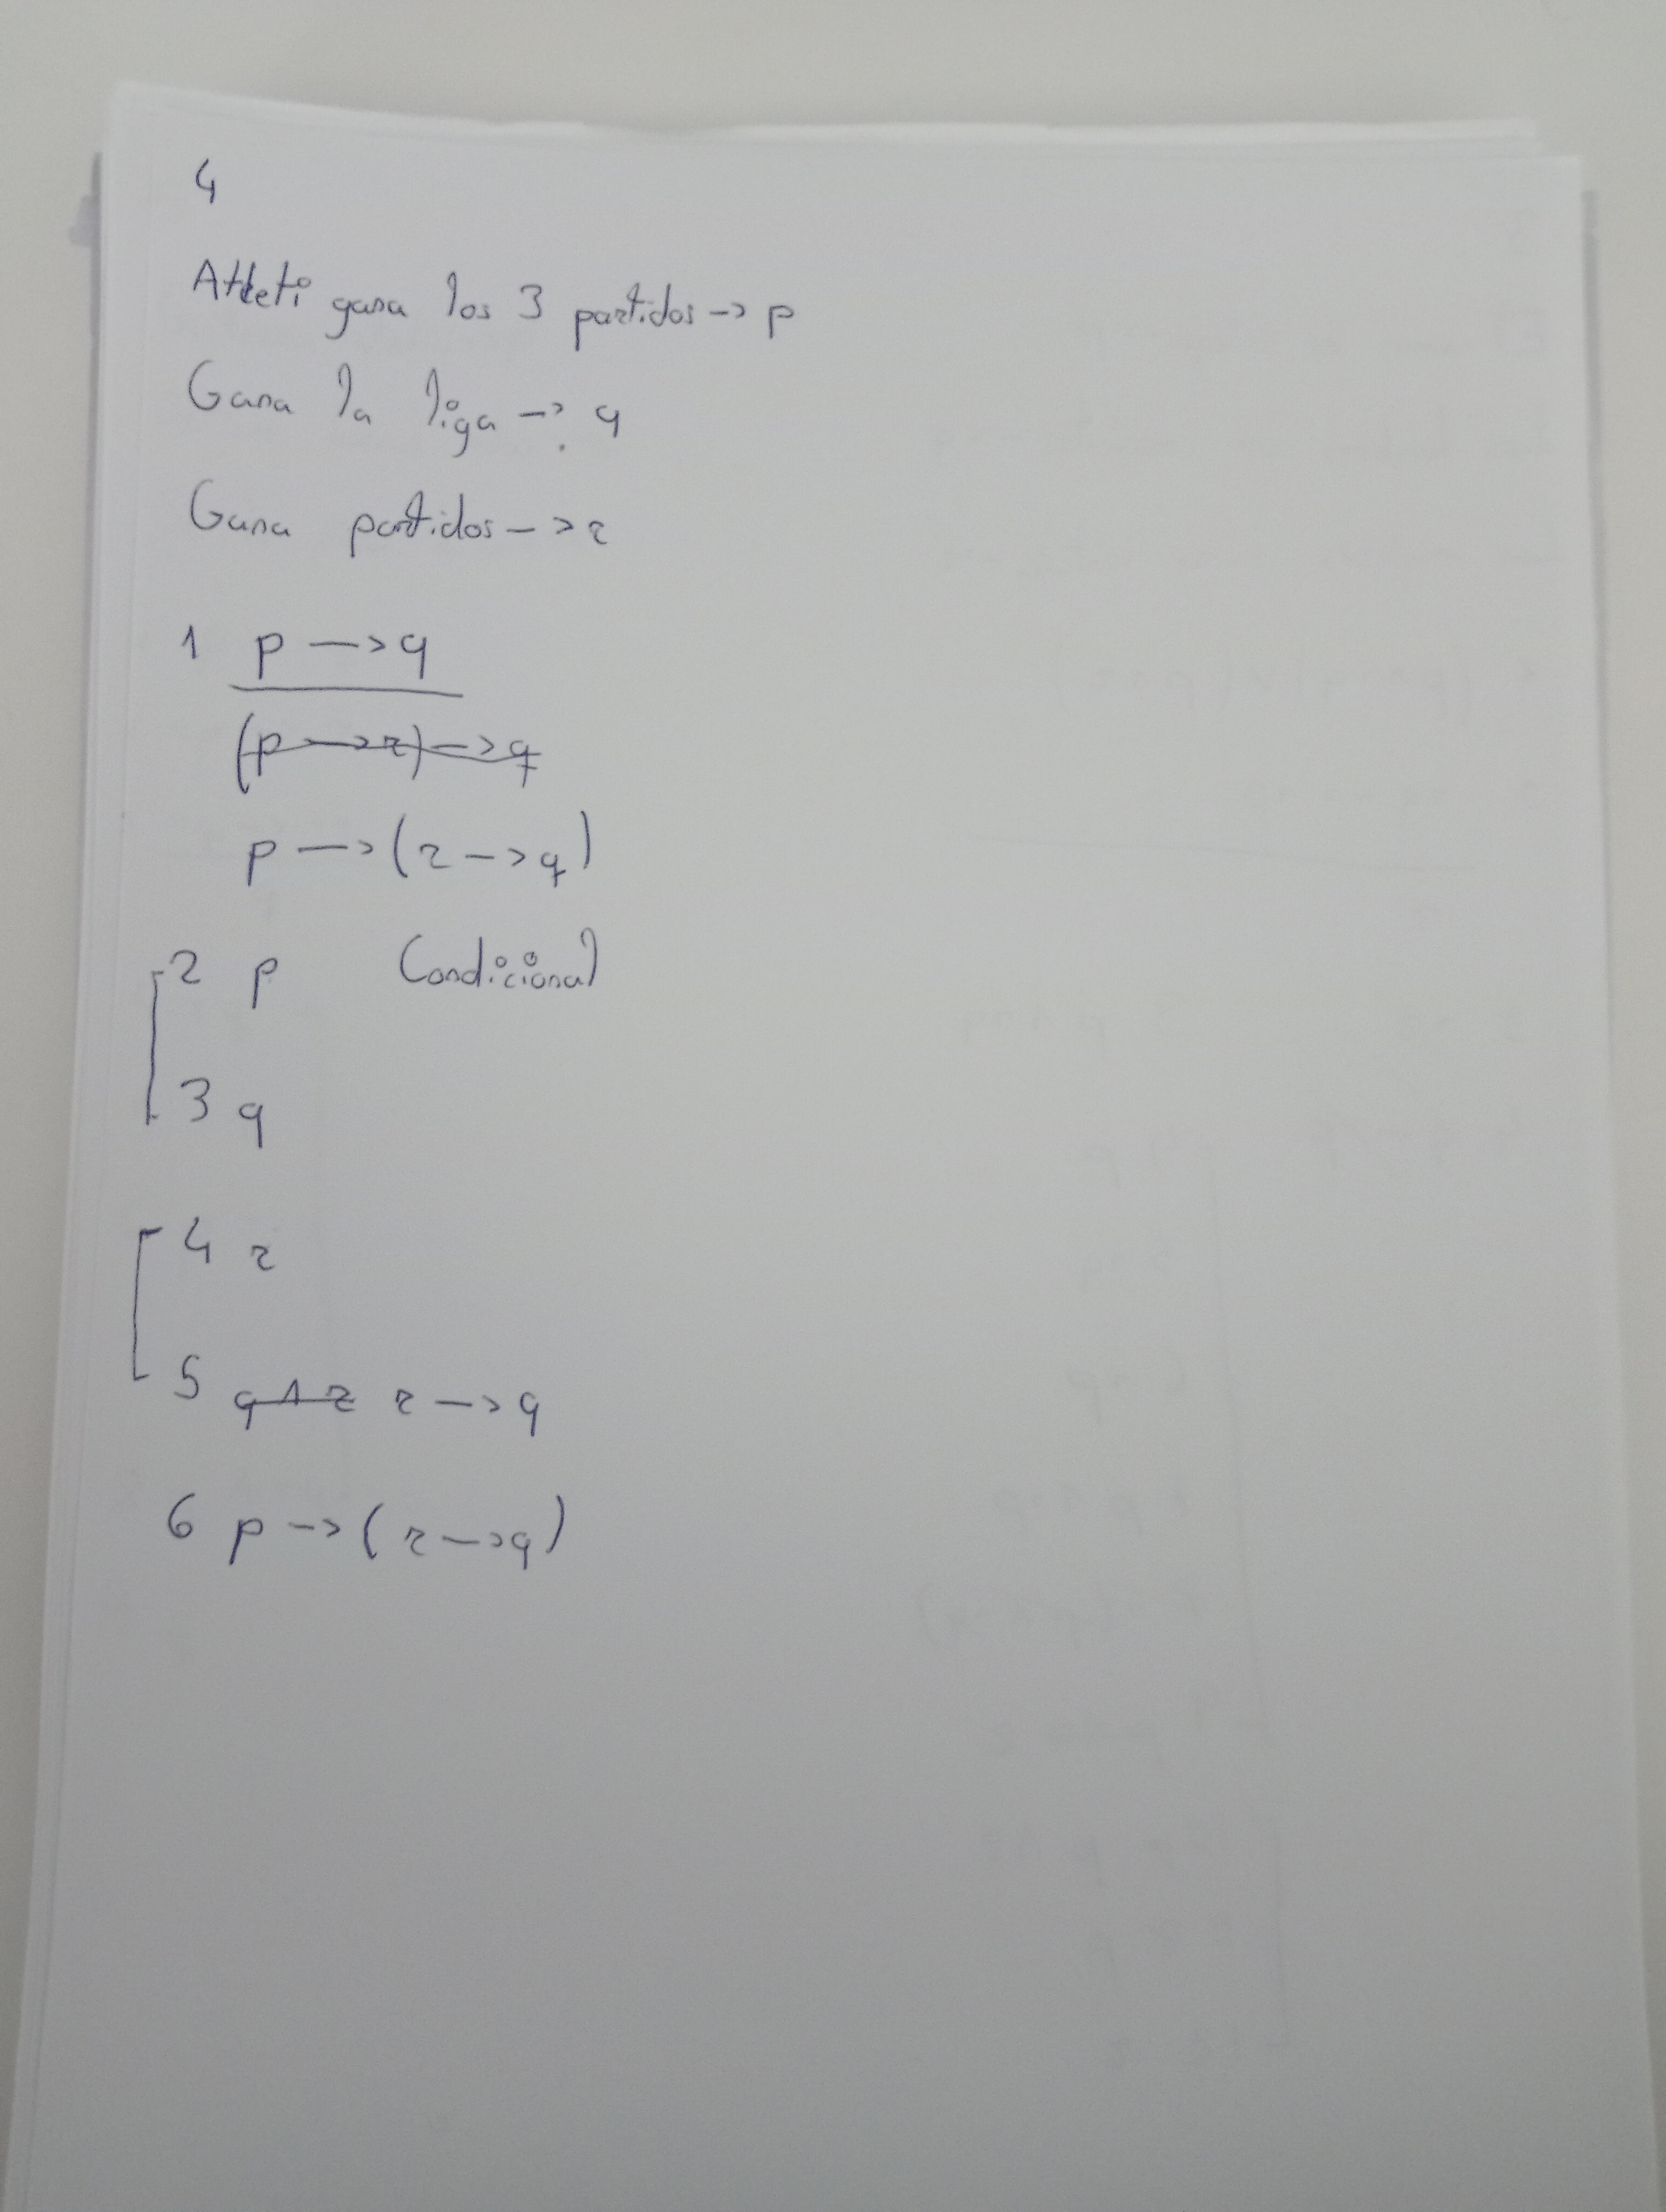 4
Atleti gana los 3 partidos -> p
Gana la liga -> q
Gana partidos -> r
1 p -> q
(p -> r) -> q
p -> (r -> q)
2 p Condicional
3 q
4 r
5 q ∧ r r -> q
6 p -> (r -> q)